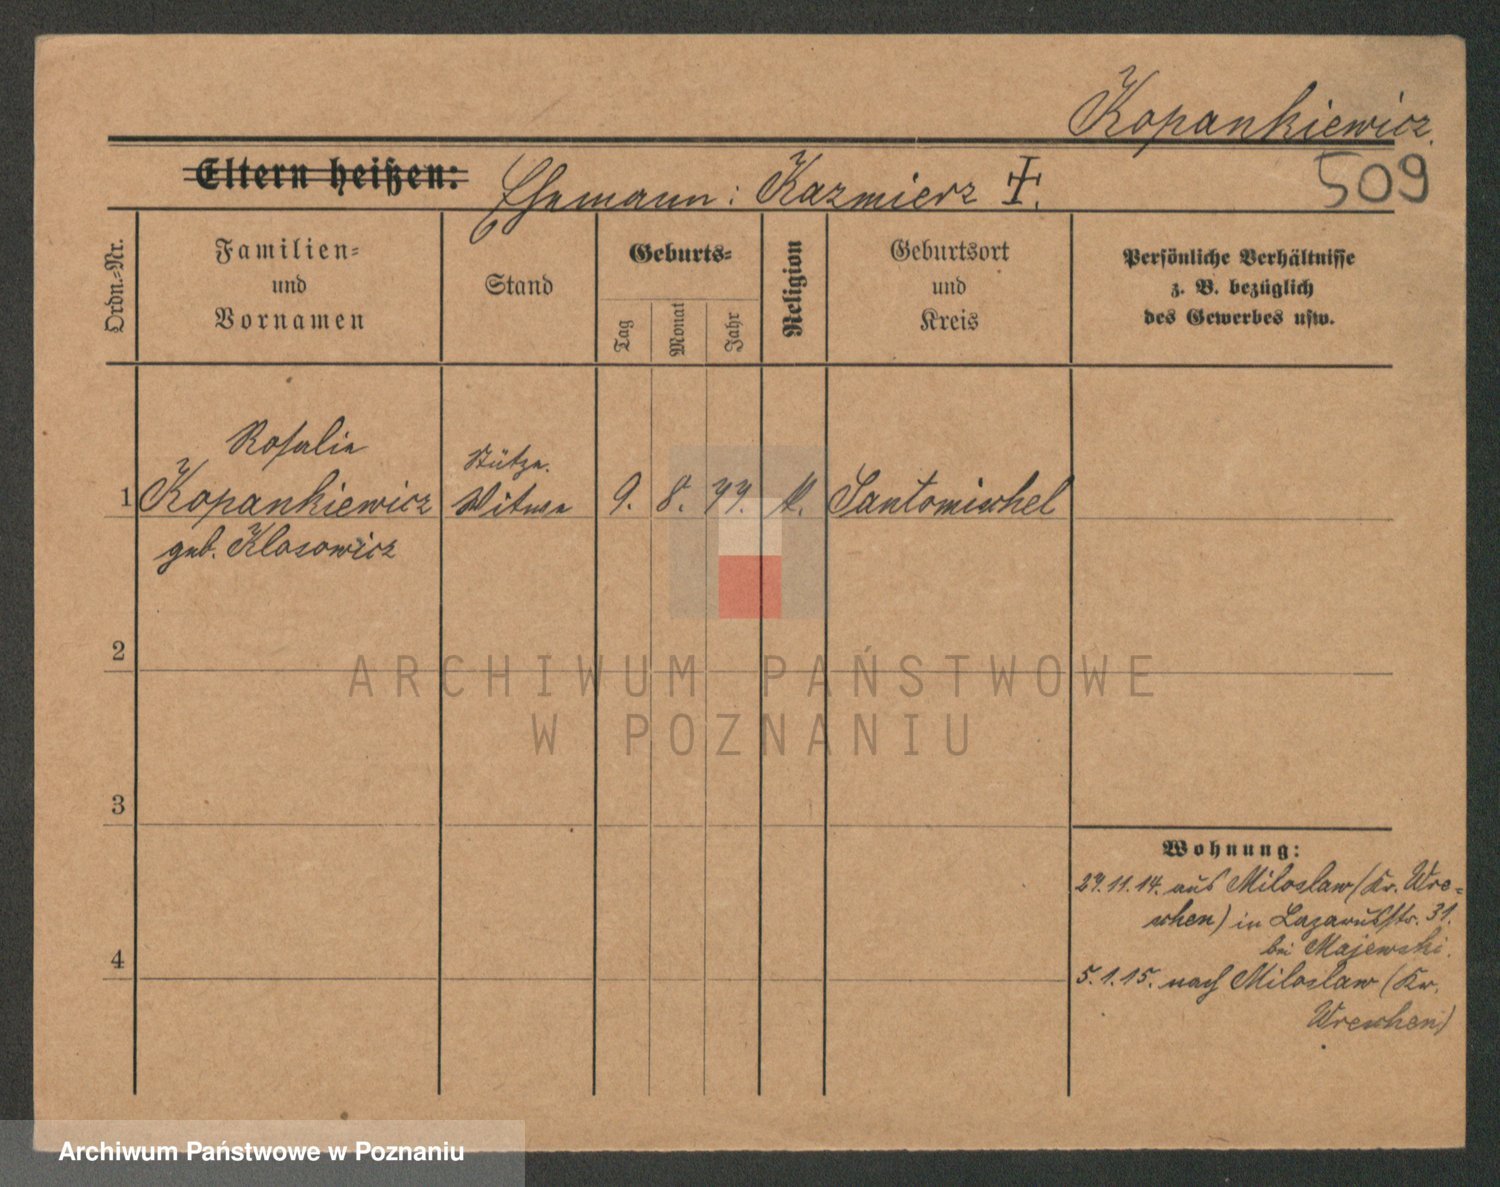 Kopankiewicz.
509
Eltern heißen: Ehemann: Kazmierz ✝.
Ordn.-Nr.
Familien-
und
Vornamen
Stand
Geburts-
Tag
Monat
Jahr
Religion
Geburtsort
und
Kreis
Persönliche Verhältnisse
z. B. bezüglich
des Gewerbes usw.
Rosalie
Stütze.
1 Kopankiewicz Witwe 9. 8. 77. k. Santomischel
geb. Klosowicz
2
3
4
ARCHIWUM PAŃSTWOWE
W POZNANIU
Wohnung:
27.11.14. aus Miloslaw (Kr. Wre-
schen) in Lazarusstr. 31.
bei Majewski.
5.1.15. nach Miloslaw (Kr.
Wreschen)
Archiwum Państwowe w Poznaniu